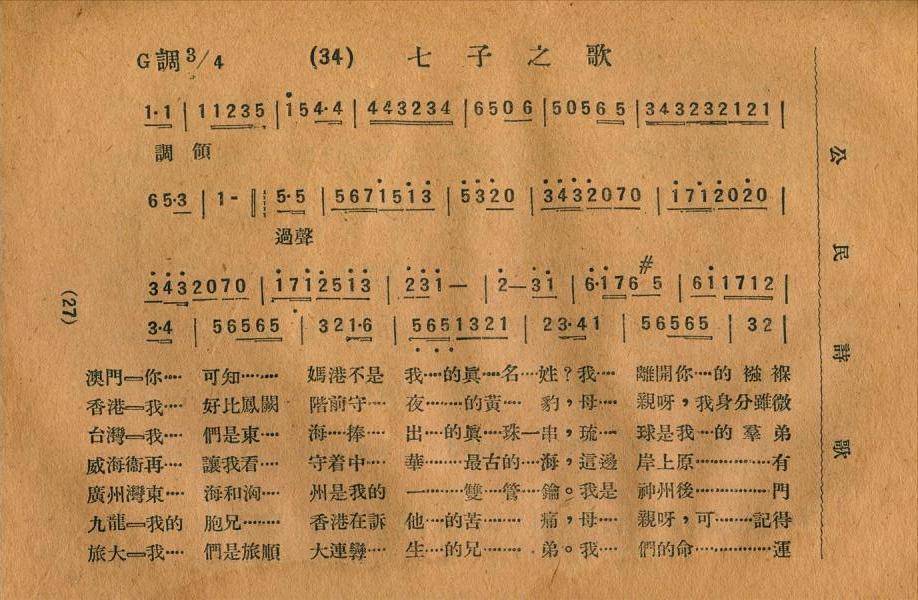 G調3/4 (34) 七子之歌
1·1 | 11235 | 154·4 | 443234 | 6506 | 50565 | 343232121 |
調領
65·3 | 1- | 5·5 | 5671513 | 5320 | 3432070 | 1712020 |
過聲
3432070 | 1712513 | 231— | 2—31 | 6·176#5 | 611712 |
3·4 | 56565 | 321·6 | 5651321 | 23·41 | 56565 | 32 |
澳門═你···· 可知······· 媽港不是 我····的眞····名···姓?我···· 離開你····的 襁褓
香港═我···· 好比鳳闕 階前守···· 夜········的黃···· 豹,母···· 親呀,我身分雖微
台灣═我···· 們是東···· 海···捧···· 出····的眞···珠一串,琉··· 球是我···的 羣弟
威海衞再···· 讓我看···· 守着中···· 華········最古的···海,這邊 岸上原··············有
廣州灣東···· 海和洶···· 州是我的 一········雙···管···鑰。我是 神州後··············門
九龍═我的 胞兄········ 香港在訴 他····的苦······· 痛,母···· 親呀,可······記得
旅大═我···· 們是旅順 大連孿···· 生····的兄········弟。我···· 們的命··············運
(27)
公民詩歌